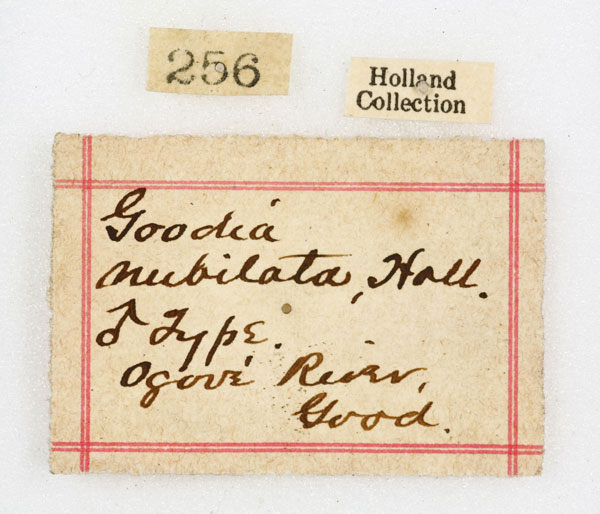 256
Holland
Collection
Goodia
nubilata, Holl.
♂ Type.
Ogové River,
Good.